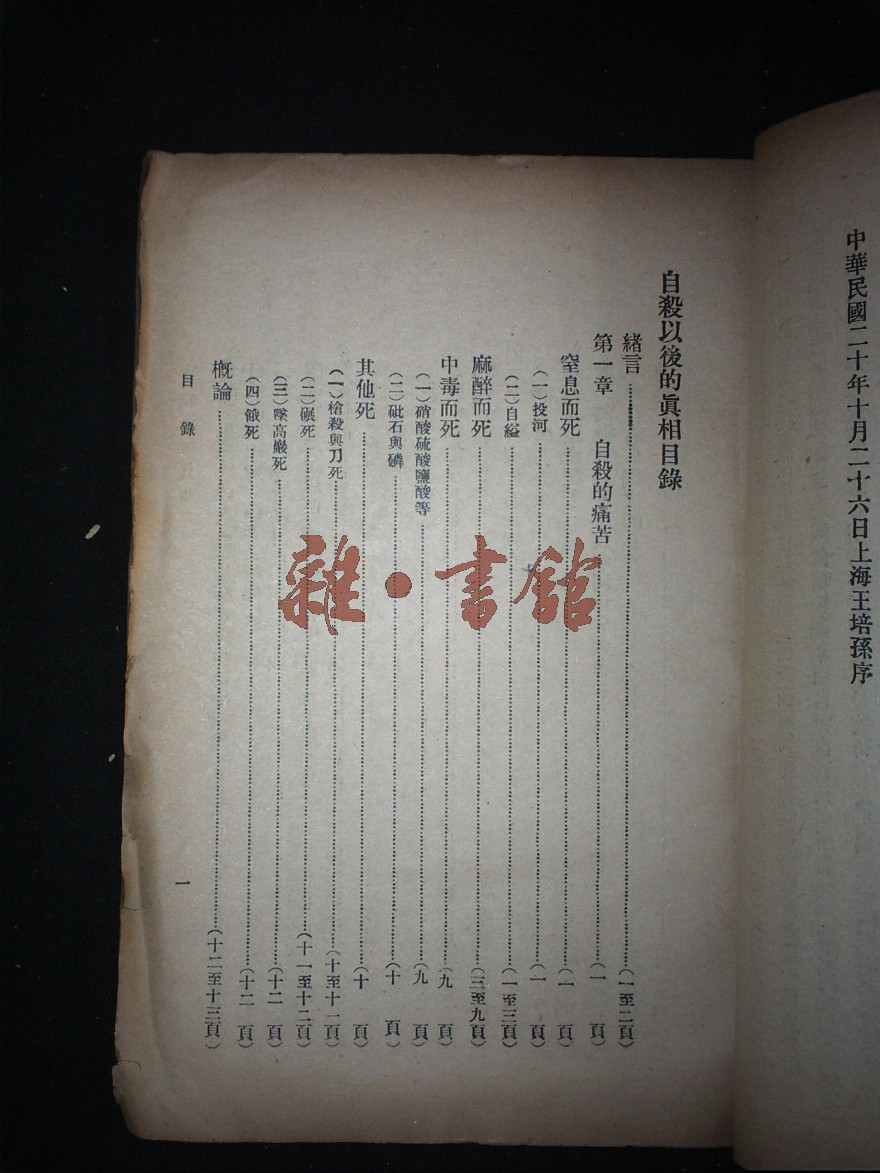 中華民國二十年十月二十六日上海王培孫序
自殺以後的眞相目錄
緒言……(一至二頁)
第一章 自殺的痛苦……(一頁)
窒息而死……(一頁)
(一)投河……(一頁)
(二)自縊……(一至三頁)
麻醉而死……(三至九頁)
中毒而死……(九頁)
(一)硝酸硫酸鹽酸等……(九頁)
(二)砒石與磷……(十頁)
其他死……(十頁)
(一)槍殺與刀死……(十至十一頁)
(二)碾死……(十一至十二頁)
(三)墜高巖死……(十二頁)
(四)餓死……(十二頁)
概論……(十二至十三頁)
目錄
一
雜·書館